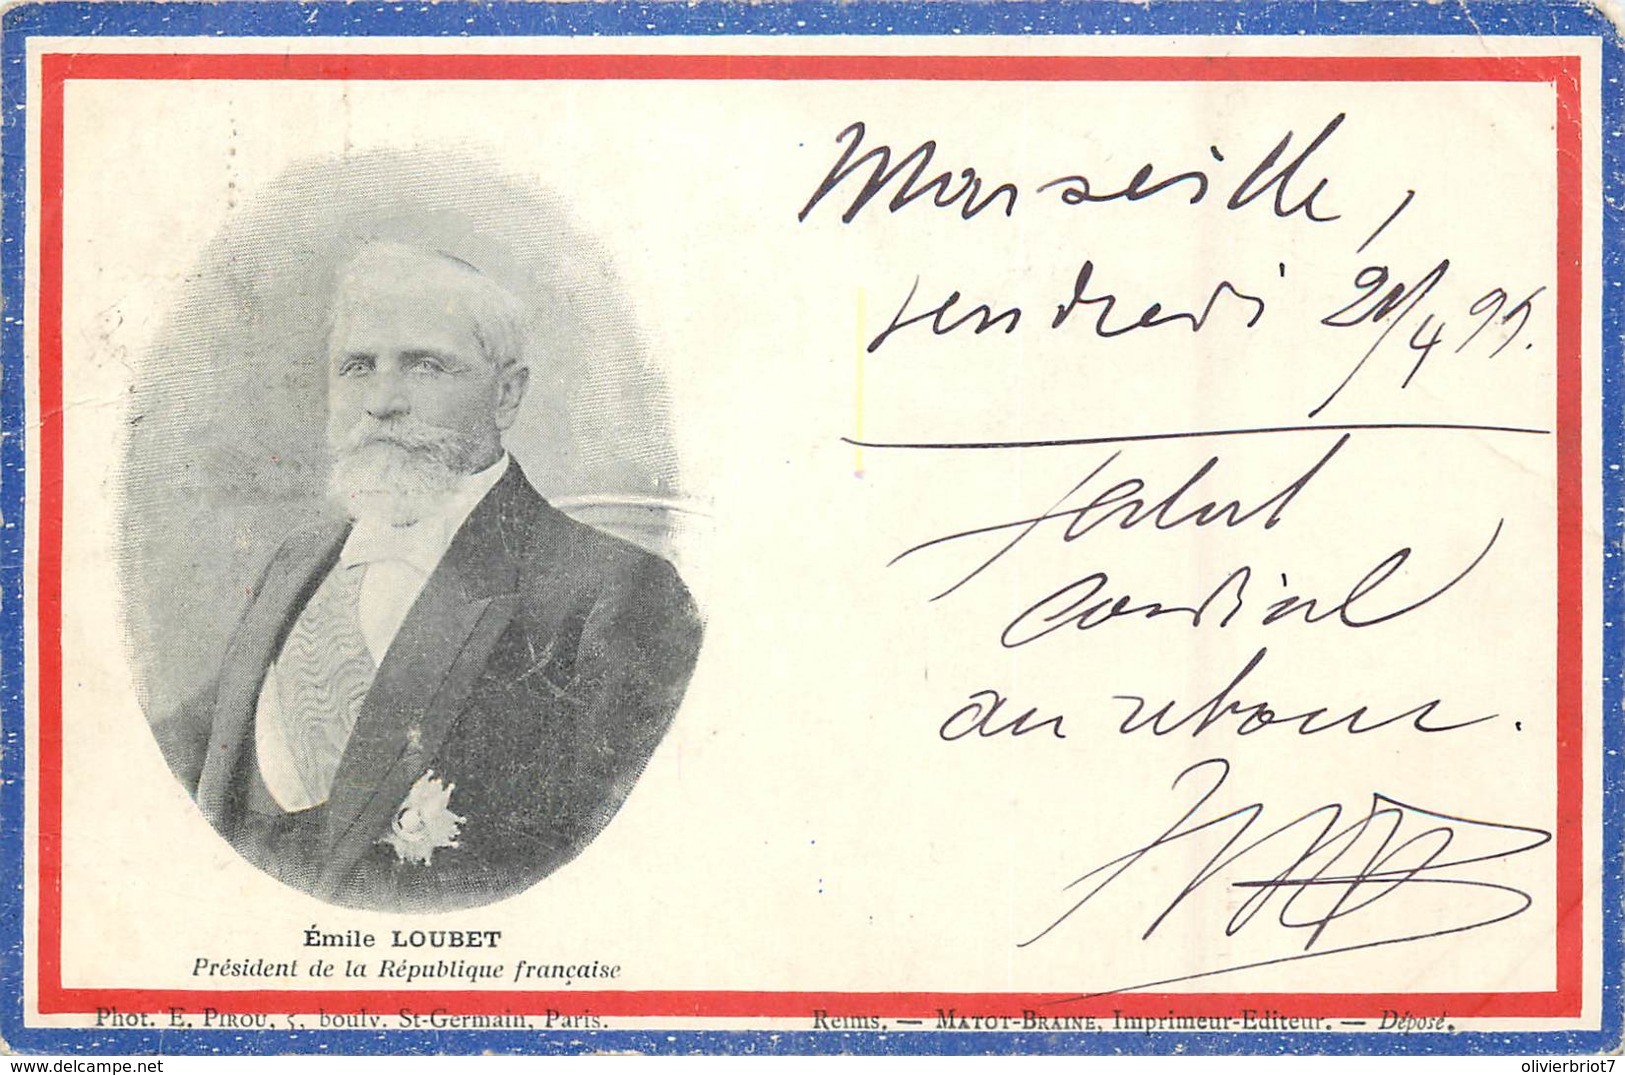 Marseille,
vendredi 21/4 99.
Salut
cordial
au retour.
Émile LOUBET
Président de la République française
Phot. E. PIROU, 5, boulv. St-Germain, Paris.
Reims. — MATOT-BRAINE, Imprimeur-Editeur. — Déposé.
delcampe.net
olivierbriot7